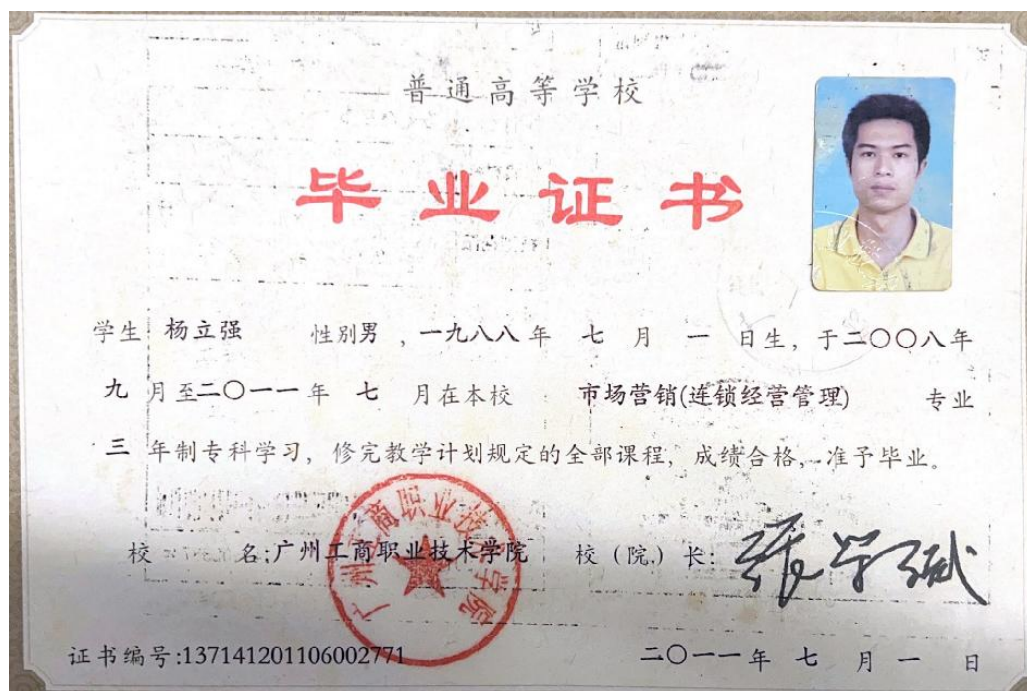 普通高等学校
毕业证书
学生 杨立强 性别男 ,一九八八年 七 月 一 日生, 于二〇〇八年
九 月至二〇一一年 七 月在本校 市场营销(连锁经营管理) 专业
三 年制专科学习, 修完教学计划规定的全部课程, 成绩合格, 准予毕业。
校 名:广州工商职业技术学院 校 (院) 长:
广州工商职业技术学院
证书编号:137141201106002771 二〇一一年 七 月 一 日